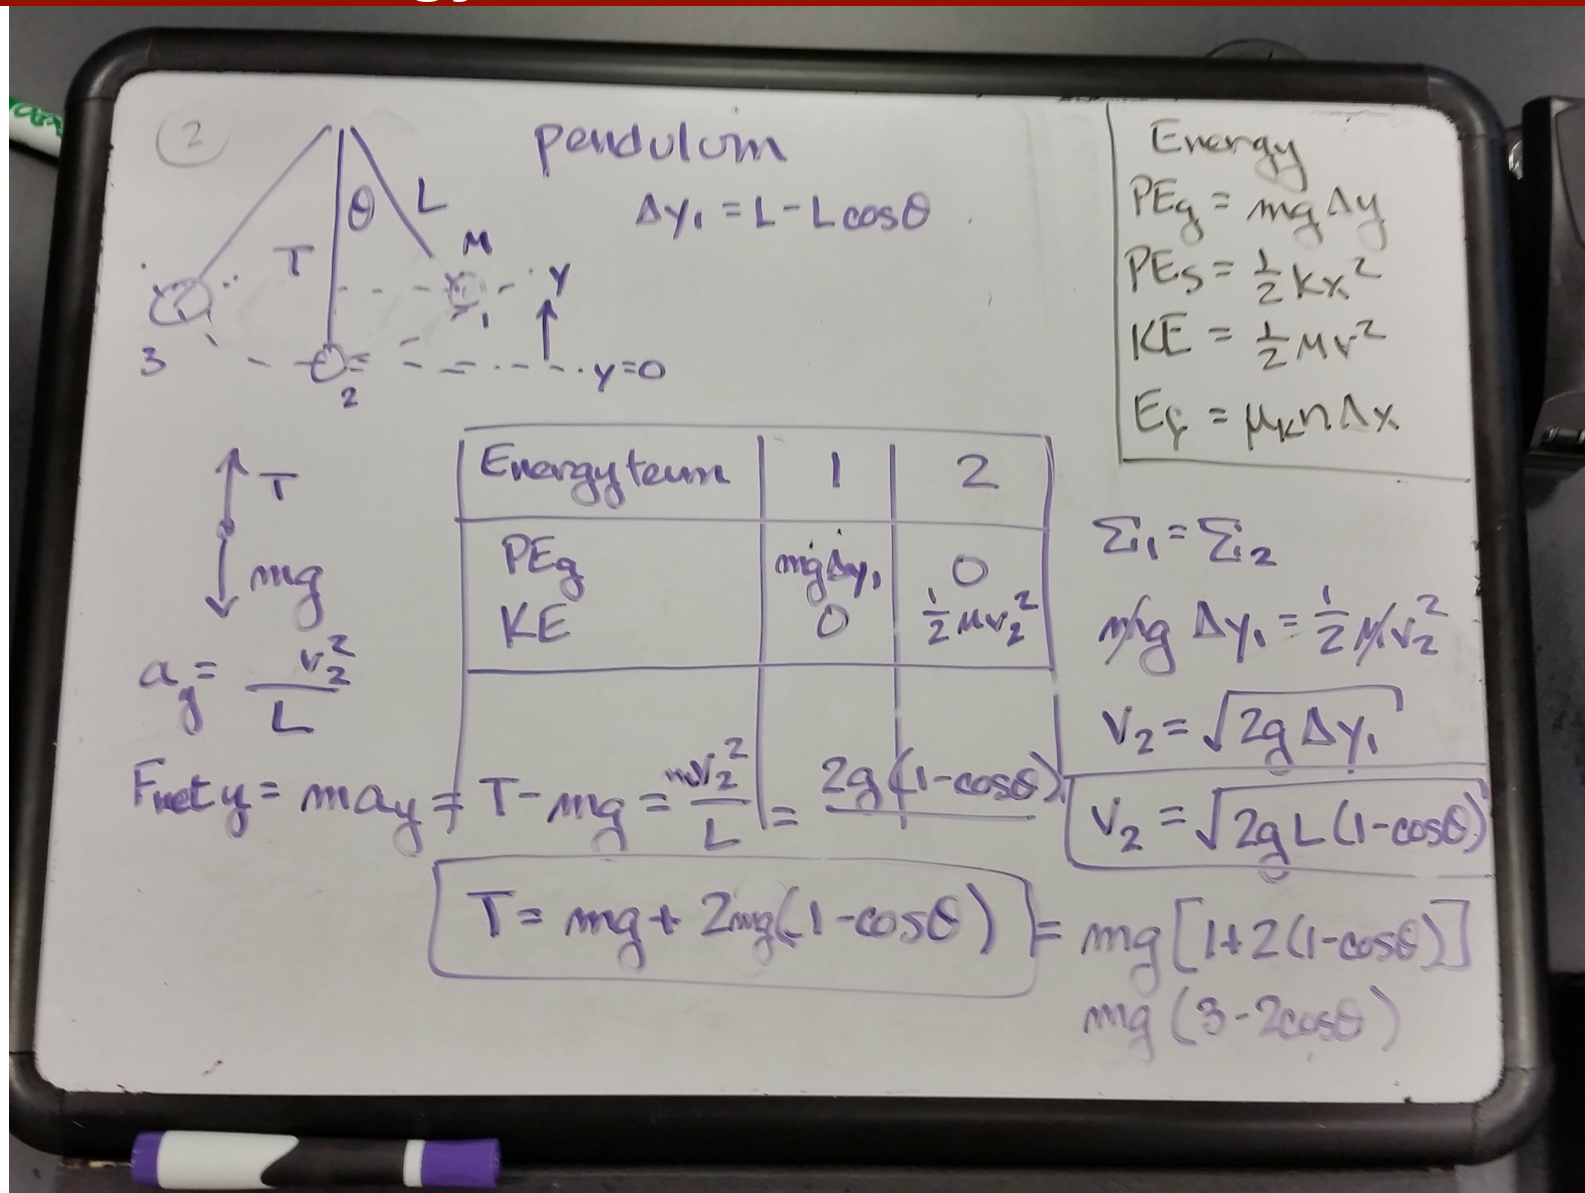 2
pendulum
Δy₁ = L - L cosθ
θ
L
T
M
1
y
3
2
y=0
Energy
PEg = mg Δy
PEs = ½ kx²
KE = ½ Mv²
Ef = μₖnΔx
T
mg
Energy term 1 2
PEg mgΔy₁ 0
KE 0 ½ Mv₂²
Σ₁ = Σ₂
mg Δy₁ = ½ Mv₂²
v₂ = √(2g Δy₁)
v₂ = √(2gL(1-cosθ))
ay = v₂²/L
Fnet y = may = T - mg = mv₂²/L = 2g(1-cosθ)
T = mg + 2mg(1-cosθ) = mg[1+2(1-cosθ)]
mg(3-2cosθ)